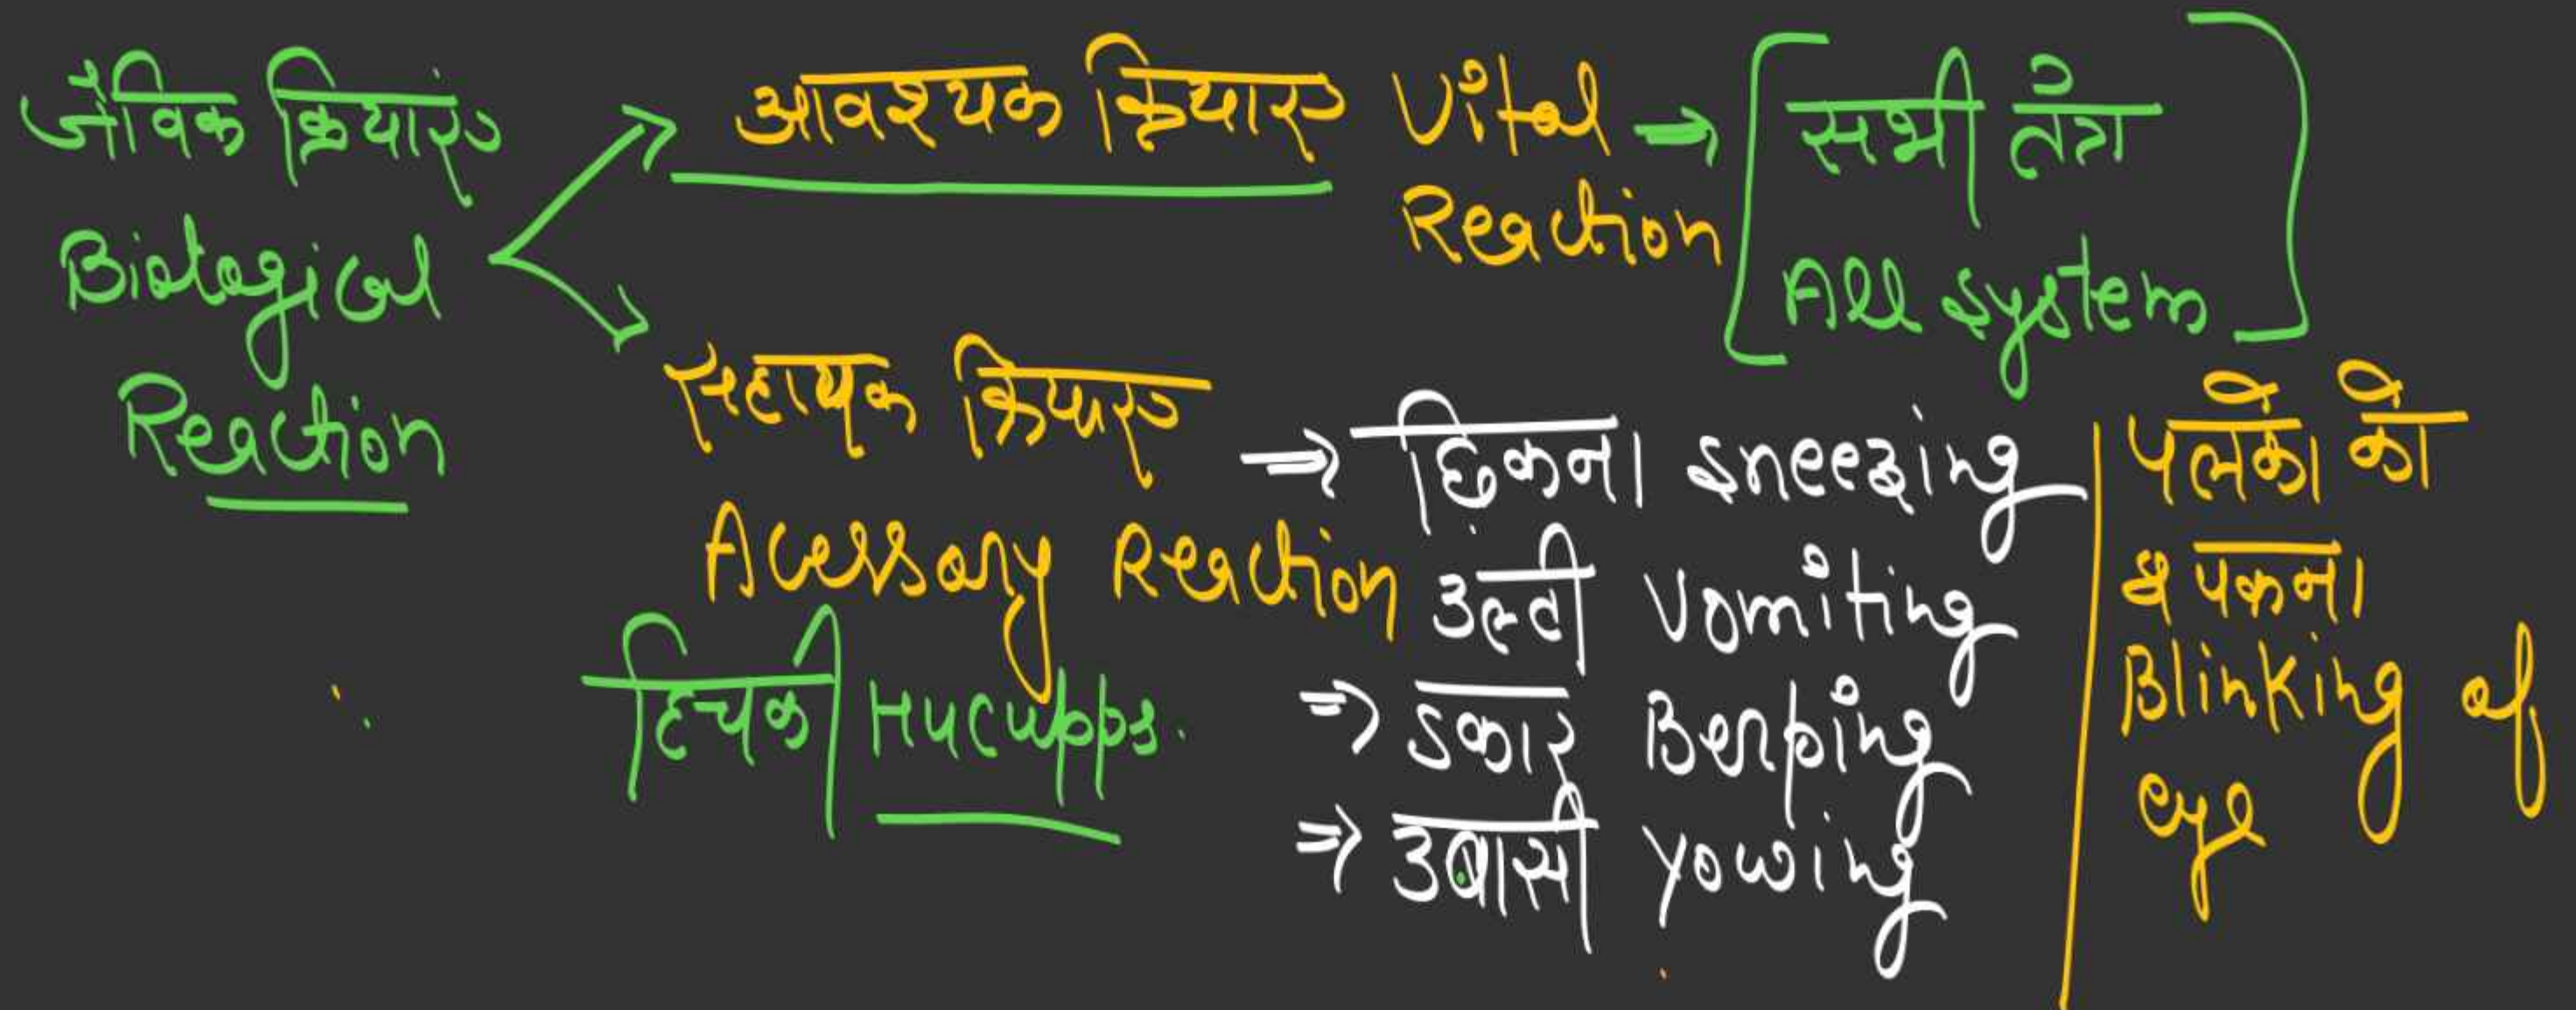 जैविक क्रियाएं
Biological
Reaction
आवश्यक क्रियाए Vital
Reaction
सभी तंत्र
All system
सहायक क्रियाए
Acessory Reaction
हिचकी Hucupps.
छिकना Sneezing
उल्टी Vomiting
डकार Berping
उबासी Yowing
पलकों को
झपकना
Blinking of
eye